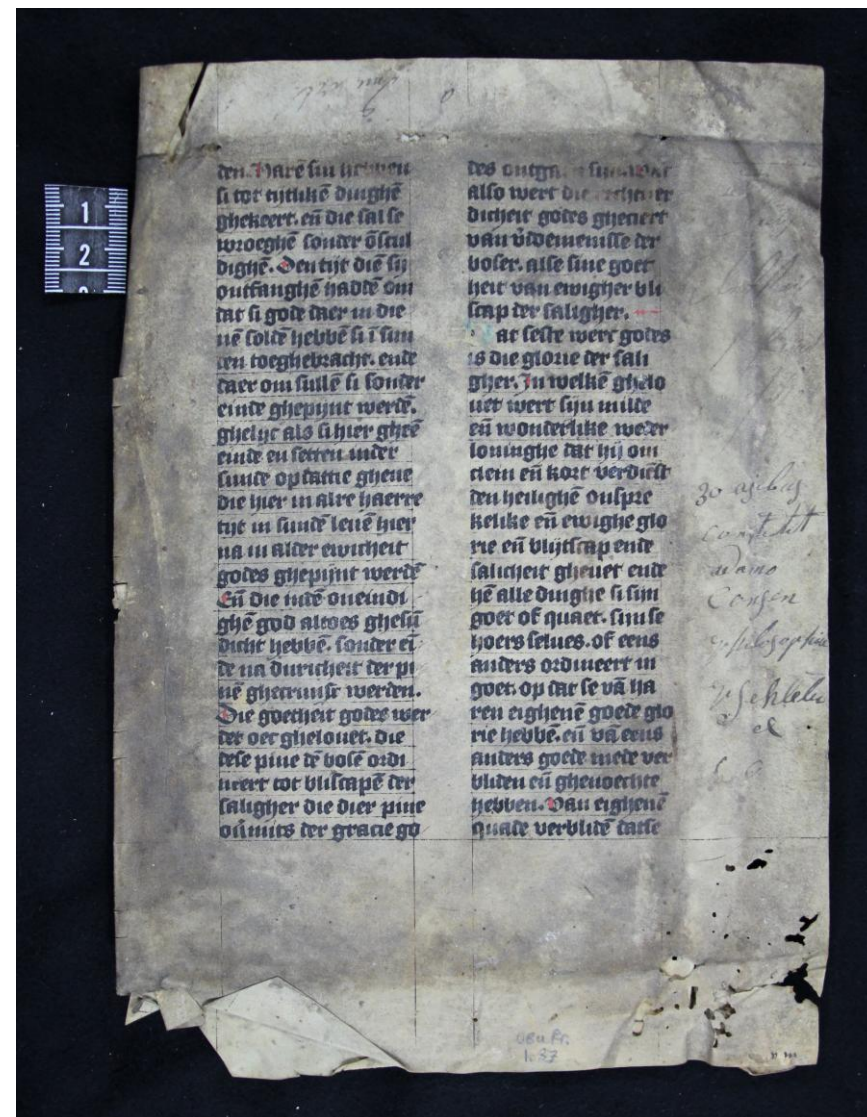 den. Haré sin hebben
si tot tijtlikē dinghē
ghekeert. eñ die sal se
wroeghē sonder ōscul
dighē. Den tijt diē sij
ontfanghē haddē om
dat si gode daer in die
nē soldē hebbē si ī sun
den toeghebracht. ende
daer om sullē si sonder
einde ghepijnt werdē.
ghelijc als si hier ghēē
einde en setten inder
sunde op dattie ghene
die hier in alre haerre
tijt in sundē leuē hier
na in alder ewicheit
godes ghepijnt werdē
Eñ die indē oneindi
ghē god altoes ghesū
dicht hebbē. sonder eī
de na duricheit der pi
nē ghecruust werden.
Die goetheit godes wer
det oec ghelouet. die
dese pine dē bosē ordi
neert tot bliscapē der
saligher die dier pine
oūmits der gracie go
des ontgaen sijn. Want
also wert die
dicheit godes gheeert
van v̄doemenisse der
boser. alse sine goet
heit van ewigher bli
scap der saligher.
Dat seste werc godes
is die glorie der sali
gher. In welkē ghelo
uet wert sijn milde
eñ wonderlike weder
loninghe dat hij om
clein eñ kort verdiēst
den heilighē onspre
kelike eñ ewighe glo
rie eñ blijtscap ende
salicheit gheuet ende
hē alle dinghe si sijn
goet of quaet. sijn se
hoers selues. of eens
anders ordineert in
goet. op dat se vā ha
ren eighenē goede glo
rie hebbē. eñ vā eens
anders goede mede ver
bliden eñ ghenoechte
hebben. Van eighenē
quade verblidē datse
constituit
adamo
Conzen
philosophiae
UBu Fr.
1.37
1
2